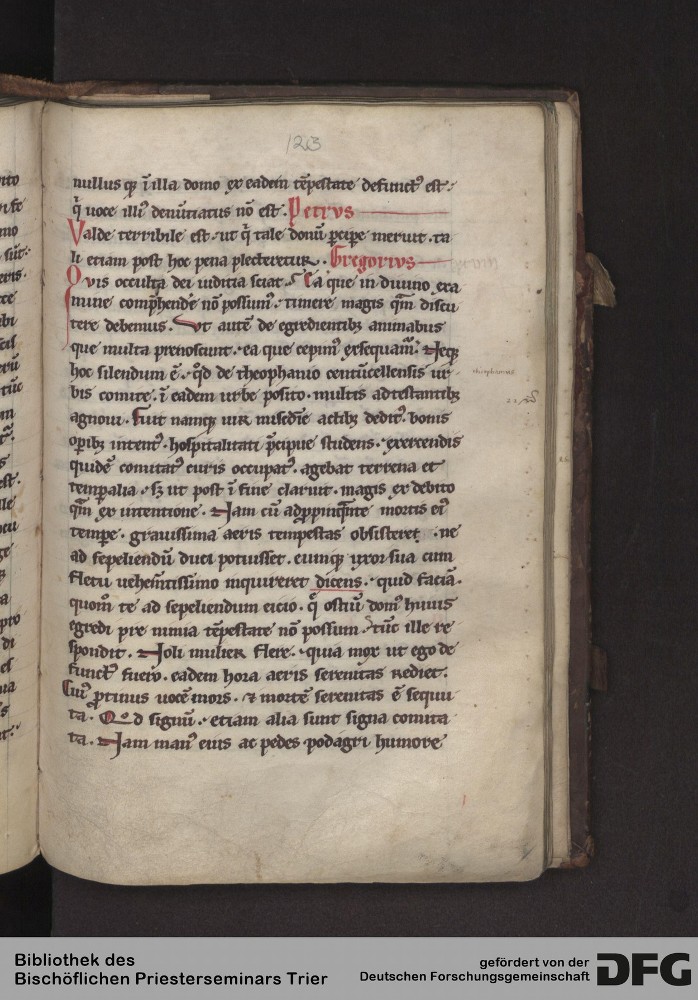 123
nullus q̨ ī illa domo ex eadem tēpestate defunctꝰ est.
q̄ uoce illiꝰ denūtiatus nō est. Petrvs
Valde terribile est. ut q̄ tale donū ꝑcipe meruit. ta
li etiam post hoc pena plecteretur. Gregorivs
Qvis occulta dei iuditia sciat. Ea que in diuino exa
mine comp̄hendē nō possumꝰ. timere magis qm̄ discu
tere debemus. Vt autē de egredientibꝫ animabus
que multa prenoscunt. ea que cepimꝰ exsequam̄. Neqꝫ
hoc silendum ē. qd̄ de theophanio centūcellensis ur
theophanius
bis comite. ī eadem urbe posito. multis adtestantibꝫ
agnoui. Fuit namqꝫ uir miscd̄ie actibꝫ deditꝰ. bonis
oꝑibꝫ intentꝰ. hospitalitati p̄cipue studens. exercendis
quidē comitatꝰ curis occupatꝰ. agebat terrena et
temꝑalia. sꝫ ut post ī fine claruit. magis ex debito
qm̄ ex intentione. Nam cū adp̱pinq̄nte mortis eiꝰ
tempe. grauissima aeris tempestas obsisteret. ne
ad sepeliendū duci potuisset. eumqꝫ uxor sua cum
fletu uehem̄tissimo inquireret dicens. quid faciā.
quom̄ te ad sepeliendum eicio. q̄ ostiū domꝰ huius
egredi pre nimia tēpestate nō possum. tūc ille re
spondit. Noli mulier flere. quia mox ut ego de
functꝰ fuero. eadem hora aeris serenitas rediet.
Cuiꝰ ꝓtinus uocē mors. & mortē serenitas ē secuu
ta. Quod signū. etiam alia sunt signa comita
ta. Nam manꝰ eius ac pedes podagri humore
Bibliothek des
Bischöflichen Priesterseminars Trier
gefördert von der
Deutschen Forschungsgemeinschaft
DFG